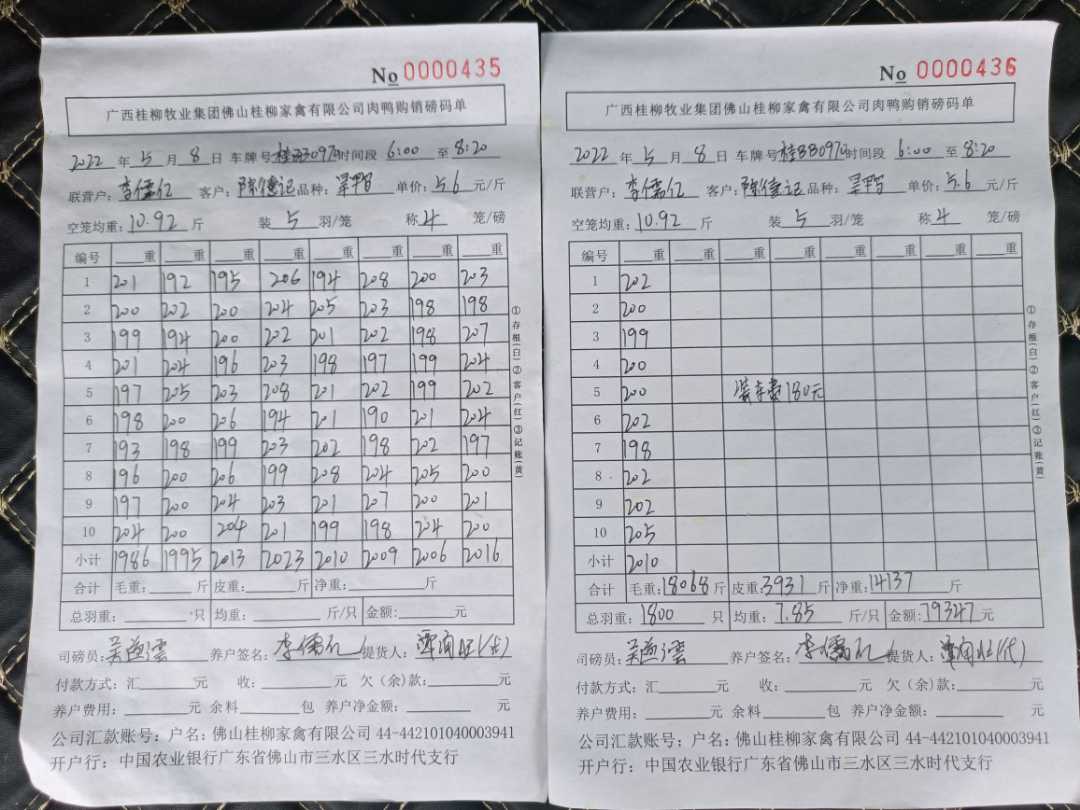 No 0000435
广西桂柳牧业集团佛山桂柳家禽有限公司肉鸭购销磅码单
2022 年 5 月 8 日 车牌号 时间段 6:00 至 8:20
联营户: 李儒亿 客户: 品种: 单价: 5.6 元/斤
空笼均重: 10.92 斤 装 5 羽/笼 称 4 笼/磅
编号 重 重 重 重 重 重 重 重
1 201 192 195 206 194 208 200 203
2 200 202 200 204 205 203 198 198
3 199 194 200 202 201 202 198 207
4 201 204 196 203 198 197 199 204
5 197 205 203 208 201 202 199 202
6 198 200 206 194 201 190 201 204
7 193 198 199 203 202 198 202 197
8 196 200 206 199 208 204 205 200
9 197 200 204 203 201 207 200 201
10 204 200 204 201 199 198 204 200
小计 1986 1995 2013 2023 2010 2009 2006 2016
合计 毛重: 斤 皮重: 斤 净重: 斤
总羽重: 只 均重: 斤/只 金额: 元
司磅员: 养户签名: 提货人:
付款方式: 汇 元 收: 元 欠(余)款: 元
养户费用: 元 余料 包 养户净金额: 元
公司汇款账号: 户名: 佛山桂柳家禽有限公司 44-442101040003941
开户行: 中国农业银行广东省佛山市三水区三水时代支行
①存根(白)②客户(红)③记账(黄)
No 0000436
广西桂柳牧业集团佛山桂柳家禽有限公司肉鸭购销磅码单
2022 年 5 月 8 日 车牌号 时间段 6:00 至 8:20
联营户: 李儒亿 客户: 品种: 单价: 5.6 元/斤
空笼均重: 10.92 斤 装 5 羽/笼 称 4 笼/磅
编号 重 重 重 重 重 重 重 重
1 202
2 200
3 199
4 200
5 200 装车费180元
6 202
7 198
8 202
9 202
10 205
小计 2010
合计 毛重: 18068 斤 皮重: 3931 斤 净重: 14137 斤
总羽重: 1800 只 均重: 7.85 斤/只 金额: 79347 元
司磅员: 养户签名: 提货人:
付款方式: 汇 元 收: 元 欠(余)款: 元
养户费用: 元 余料 包 养户净金额: 元
公司汇款账号: 户名: 佛山桂柳家禽有限公司 44-442101040003941
开户行: 中国农业银行广东省佛山市三水区三水时代支行
①存根(白)②客户(红)③记账(黄)